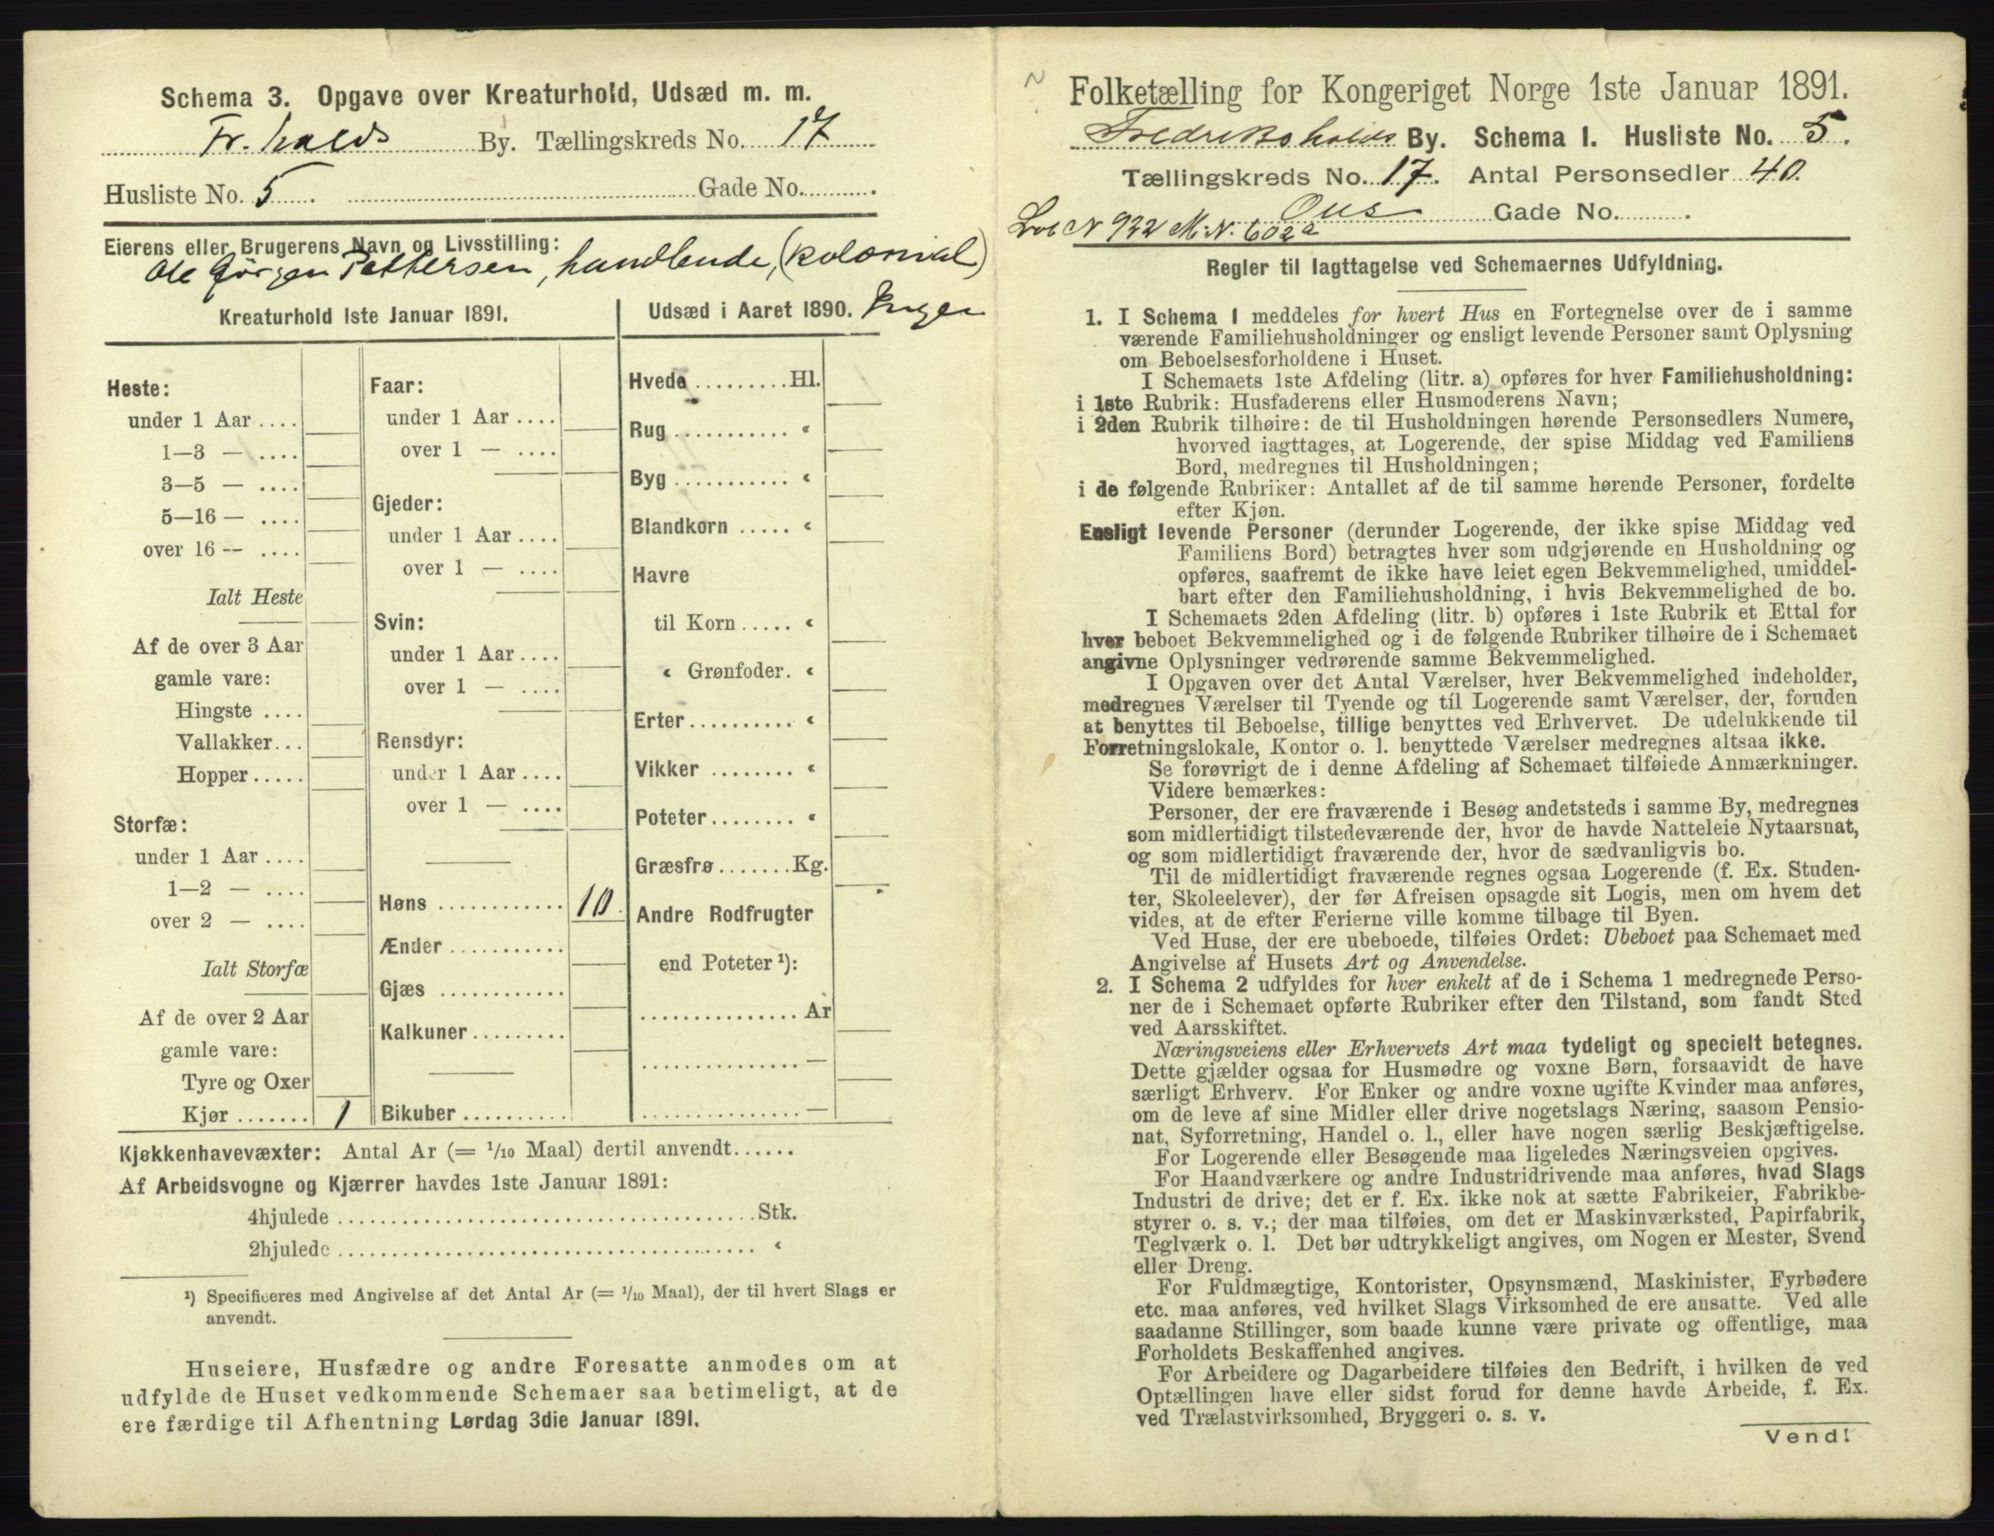 Schema 3. Opgave over Kreaturhold, Udsæd m. m.
Fr.halds By. Tællingskreds No. 17
Husliste No. 5. Gade No.
Eierens eller Brugerens Navn og Livsstilling:
Ole Jørgen Pettersen, handlende, (kolonial)
Kreaturhold 1ste Januar 1891.
Heste:
under 1 Aar
1—3 —
3—5 —
5—16 —
over 16 —
Ialt Heste
Af de over 3 Aar
gamle vare:
Hingste
Vallakker
Hopper
Storfæ:
under 1 Aar
1—2 —
over 2 —
Ialt Storfæ
Af de over 2 Aar
gamle vare:
Tyre og Oxer
Kjør 1
Faar:
under 1 Aar
over 1 —
Gjeder:
under 1 Aar
over 1 —
Svin:
under 1 Aar
over 1 —
Rensdyr:
under 1 Aar
over 1 —
Høns 10
Ænder
Gjæs
Kalkuner
Bikuber
Udsæd i Aaret 1890. Ingen
Hvede Hl.
Rug "
Byg "
Blandkorn "
Havre
til Korn "
" Grønfoder. "
Erter "
Vikker "
Poteter "
Græsfrø Kg.
Andre Rodfrugter
end Poteter ¹):
Ar
—
—
Kjøkkenhavevæxter: Antal Ar (= 1/10 Maal) dertil anvendt
Af Arbeidsvogne og Kjærrer havdes 1ste Januar 1891:
4hjulede Stk.
2hjulede "
¹) Specificeres med Angivelse af det Antal Ar (= 1/10 Maal), der til hvert Slags er
anvendt.
Huseiere, Husfædre og andre Foresatte anmodes om at
udfylde de Huset vedkommende Schemaer saa betimeligt, at de
ere færdige til Afhentning Lørdag 3die Januar 1891.
Folketælling for Kongeriget Norge 1ste Januar 1891.
Fredrikshalds By. Schema I. Husliste No. 5.
Tællingskreds No. 17. Antal Personsedler 40.
Ous Gade No.
Lob N 932 M.N. 602a
Regler til Iagttagelse ved Schemaernes Udfyldning.
1. I Schema 1 meddeles for hvert Hus en Fortegnelse over de i samme
værende Familiehusholdninger og ensligt levende Personer samt Oplysning
om Beboelsesforholdene i Huset.
I Schemaets 1ste Afdeling (litr. a) opføres for hver Familiehusholdning:
i 1ste Rubrik: Husfaderens eller Husmoderens Navn;
i 2den Rubrik tilhøire: de til Husholdningen hørende Personsedlers Numere,
hvorved iagttages, at Logerende, der spise Middag ved Familiens
Bord, medregnes til Husholdningen;
i de følgende Rubriker: Antallet af de til samme hørende Personer, fordelte
efter Kjøn.
Ensligt levende Personer (derunder Logerende, der ikke spise Middag ved
Familiens Bord) betragtes hver som udgjørende en Husholdning og
opføres, saafremt de ikke have leiet egen Bekvemmelighed, umiddel-
bart efter den Familiehusholdning, i hvis Bekvemmelighed de bo.
I Schemaets 2den Afdeling (litr. b) opføres i 1ste Rubrik et Ettal for
hver beboet Bekvemmelighed og i de følgende Rubriker tilhøire de i Schemaet
angivne Oplysninger vedrørende samme Bekvemmelighed.
I Opgaven over det Antal Værelser, hver Bekvemmelighed indeholder,
medregnes Værelser til Tyende og til Logerende samt Værelser, der, foruden
at benyttes til Beboelse, tillige benyttes ved Erhvervet. De udelukkende til
Forretningslokale, Kontor o. l. benyttede Værelser medregnes altsaa ikke.
Se forøvrigt de i denne Afdeling af Schemaet tilføiede Anmærkninger.
Videre bemærkes:
Personer, der ere fraværende i Besøg andetsteds i samme By, medregnes
som midlertidigt tilstedeværende der, hvor de havde Natteleie Nytaarsnat,
og som midlertidigt fraværende der, hvor de sædvanligvis bo.
Til de midlertidigt fraværende regnes ogsaa Logerende (f. Ex. Studen-
ter, Skoleelever), der før Afreisen opsagde sit Logis, men om hvem det
vides, at de efter Ferierne ville komme tilbage til Byen.
Ved Huse, der ere ubeboede, tilføies Ordet: Ubeboet paa Schemaet med
Angivelse af Husets Art og Anvendelse.
2. I Schema 2 udfyldes for hver enkelt af de i Schema 1 medregnede Perso-
ner de i Schemaet opførte Rubriker efter den Tilstand, som fandt Sted
ved Aarsskiftet.
Næringsveiens eller Erhvervets Art maa tydeligt og specielt betegnes.
Dette gjælder ogsaa for Husmødre og voxne Børn, forsaavidt de have
særligt Erhverv. For Enker og andre voxne ugifte Kvinder maa anføres,
om de leve af sine Midler eller drive nogetslags Næring, saasom Pensio-
nat, Syforretning, Handel o. l., eller have nogen særlig Beskjæftigelse.
For Logerende eller Besøgende maa ligeledes Næringsveien opgives.
For Haandværkere og andre Industridrivende maa anføres, hvad Slags
Industri de drive; det er f. Ex. ikke nok at sætte Fabrikeier, Fabrikbe-
styrer o. s. v.; der maa tilføies, om det er Maskinværksted, Papirfabrik,
Teglværk o. l. Det bør udtrykkeligt angives, om Nogen er Mester, Svend
eller Dreng.
For Fuldmægtige, Kontorister, Opsynsmænd, Maskinister, Fyrbødere
etc. maa anføres, ved hvilket Slags Virksomhed de ere ansatte. Ved alle
saadanne Stillinger, som baade kunne være private og offentlige, maa
Forholdets Beskaffenhed angives.
For Arbeidere og Dagarbeidere tilføies den Bedrift, i hvilken de ved
Optællingen have eller sidst forud for denne havde Arbeide, f. Ex.
ved Trælastvirksomhed, Bryggeri o. s. v.
Vend!